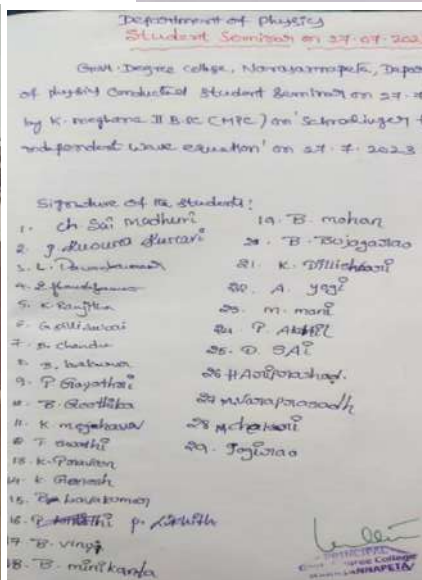 Department of Physics
Student Seminar on 27.07.202
Govt. Degree College, Narasannapeta, Depar
of physics Conducted Student Seminar on 27.7
by K. meghana II B.SC (MPC) on 'Schrodinger t
independent wave equation' on 27.7.2023
Signature of the students:
1. ch Sai Madhuri
2.
3. L.
4.
5. K Ranjitha
6. G
7. B. chandu
8. B.
9. P Gayathri
10. B. Geethika
11. K. meghana
12. T. swathi
13. K. Praveen
14. K Ganesh
15. B Lavakumar
16. P. Likhith
17. B. vinay
18. B. manikanta
19. B. mohan
20. B. Bojagarao
21. K.
22. A. yogi
23. m. mani
24. P. Akhil
25. D. SAI
26 H Hariprashad.
27 M.Varaprasadh
28 M chakari
29. Jogirao
PRINCIPAL
Govt. Degree College
NARASANNAPETA